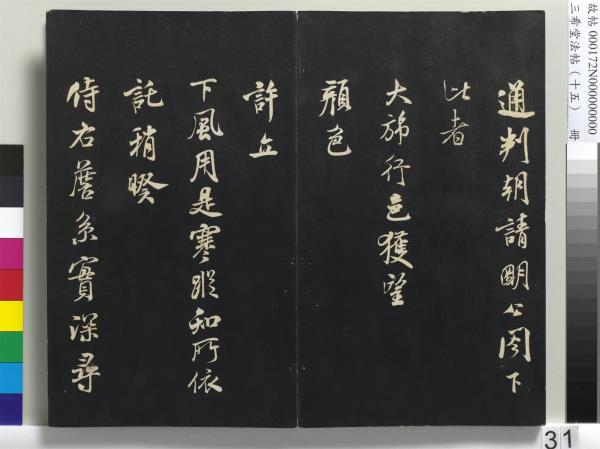 通判朝請明公閣下
比者
大旆行色獲望
顏色
許立
下風用是寒蹤知所依
託稍暌
侍右詹系實深尋
故帖 000172N000000000
三希堂法帖（十五） 冊
31